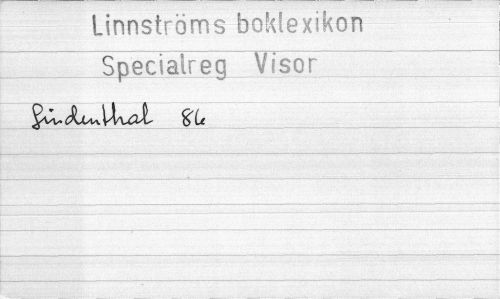 Linnströms boklexikon
Specialreg Visor
Lindenthal 86